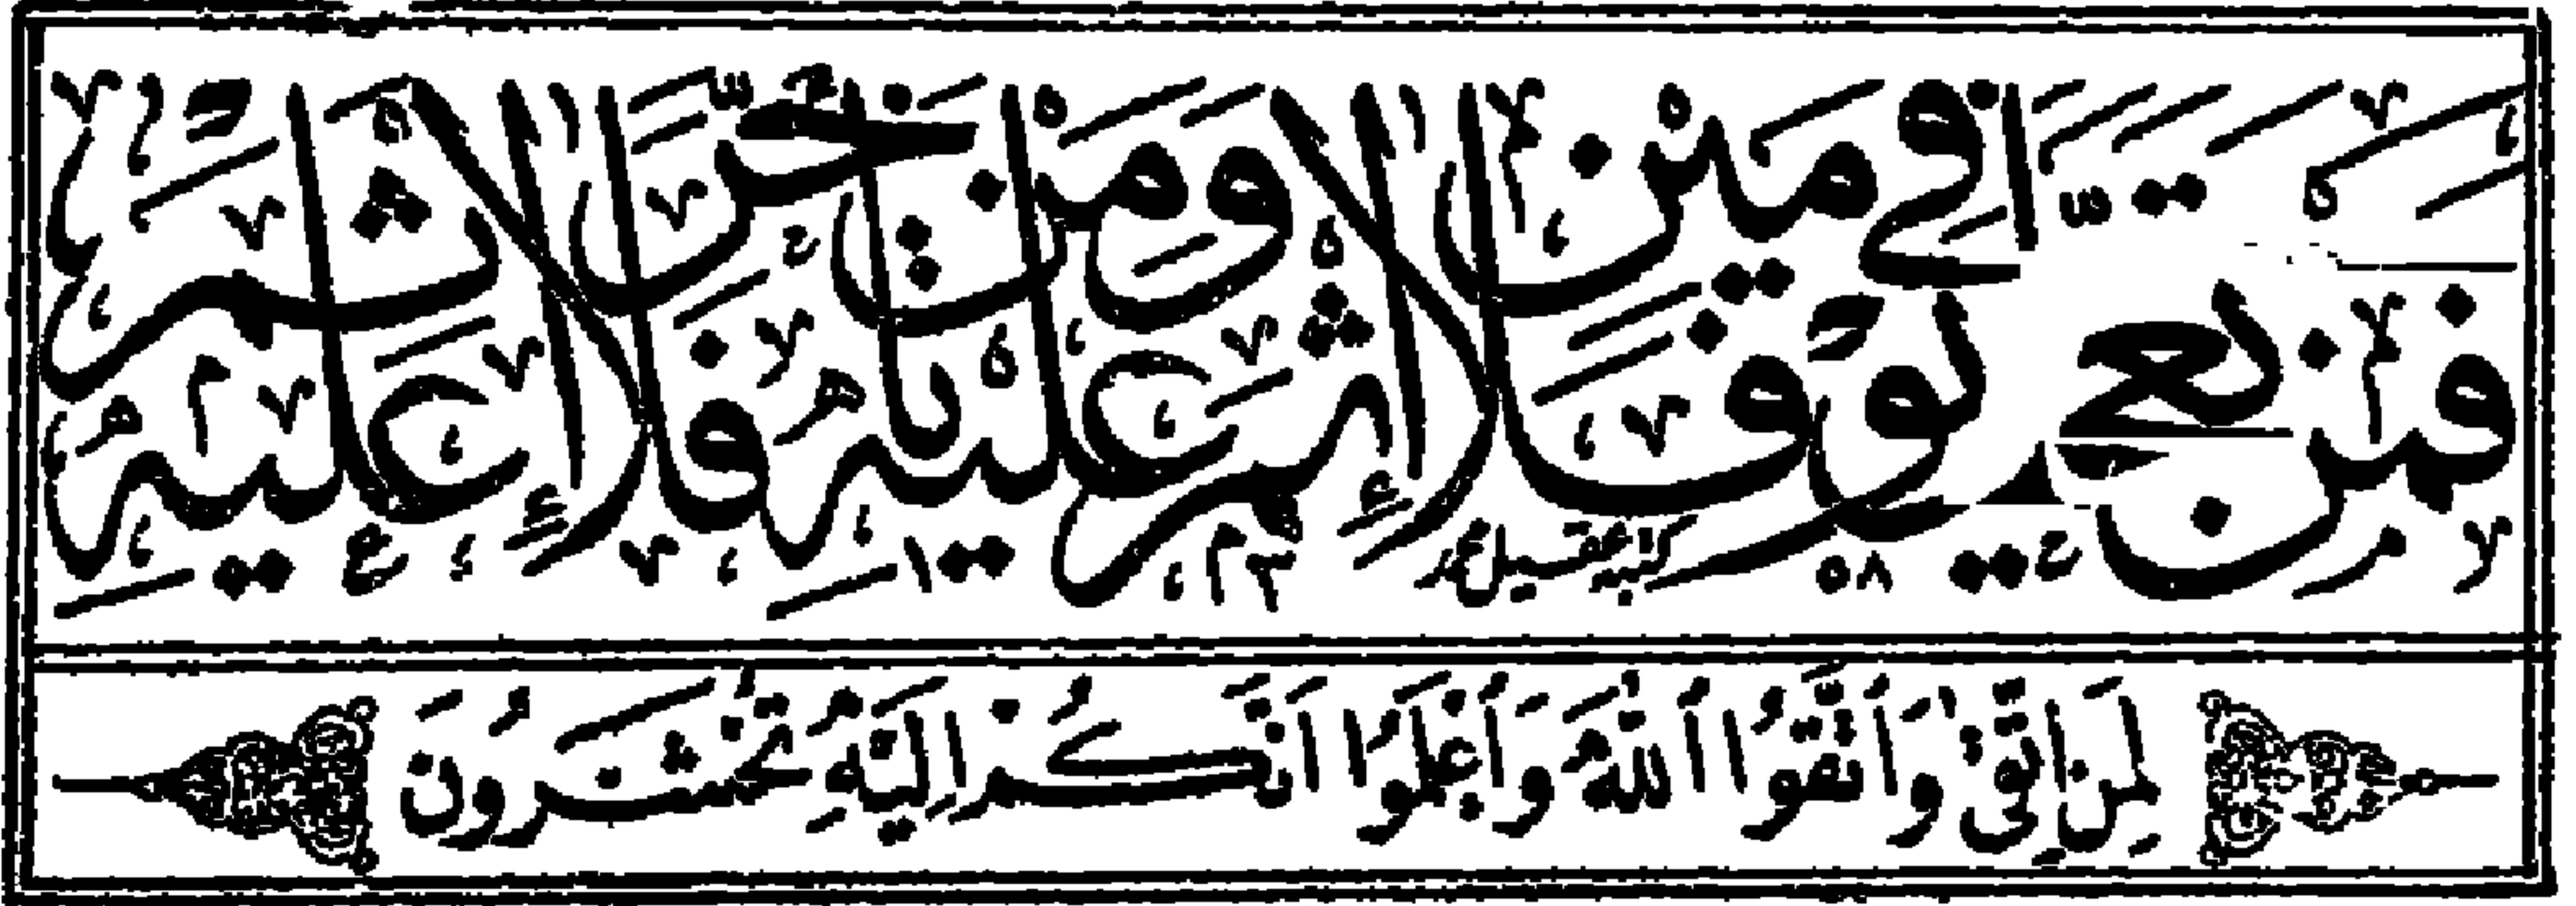 فمن تعجل في يومين فلا اثم عليه ومن تأخر فلا اثم عليه
لمن اتقى واتقوا الله واعلموا انكم اليه تحشرون